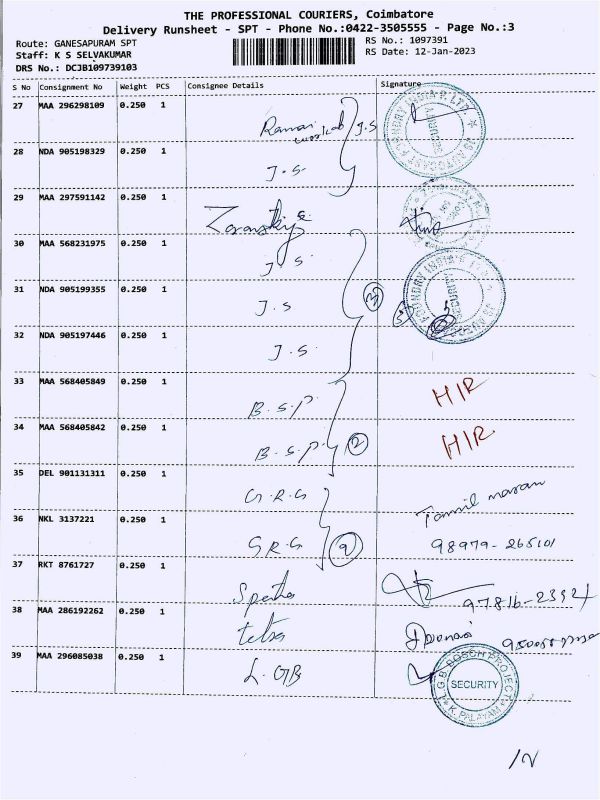 THE PROFESSIONAL COURIERS, Coimbatore
Delivery Runsheet - SPT - Phone No.:0422-3505555 - Page No.:3
Route: GANESAPURAM SPT
RS No.: 1097391
Staff: K S SELVAKUMAR
RS Date: 12-Jan-2023
DRS No.: DCJB109739103
S No Consignment No Weight PCS Consignee Details Signature
27 MAA 296298109 0.250 1
J.S
28 NDA 905198329 0.250 1
J.S
29 MAA 297591142 0.250 1
30 MAA 568231975 0.250 1
J.S
31 NDA 905199355 0.250 1
J.S
32 NDA 905197446 0.250 1
J.S
33 MAA 568405849 0.250 1
B.S.P HIR
34 MAA 568405842 0.250 1
B.S.P 2 HIR
35 DEL 901131311 0.250 1
G.R.G Tamil maran
36 NKL 3137221 0.250 1
G.R.G 98979-265101
37 RKT 8761727 0.250 1
38 MAA 286192262 0.250 1
39 MAA 296085038 0.250 1
L.GB
L.G.B BOSCH PROJECT
SECURITY
K. PALAYAM